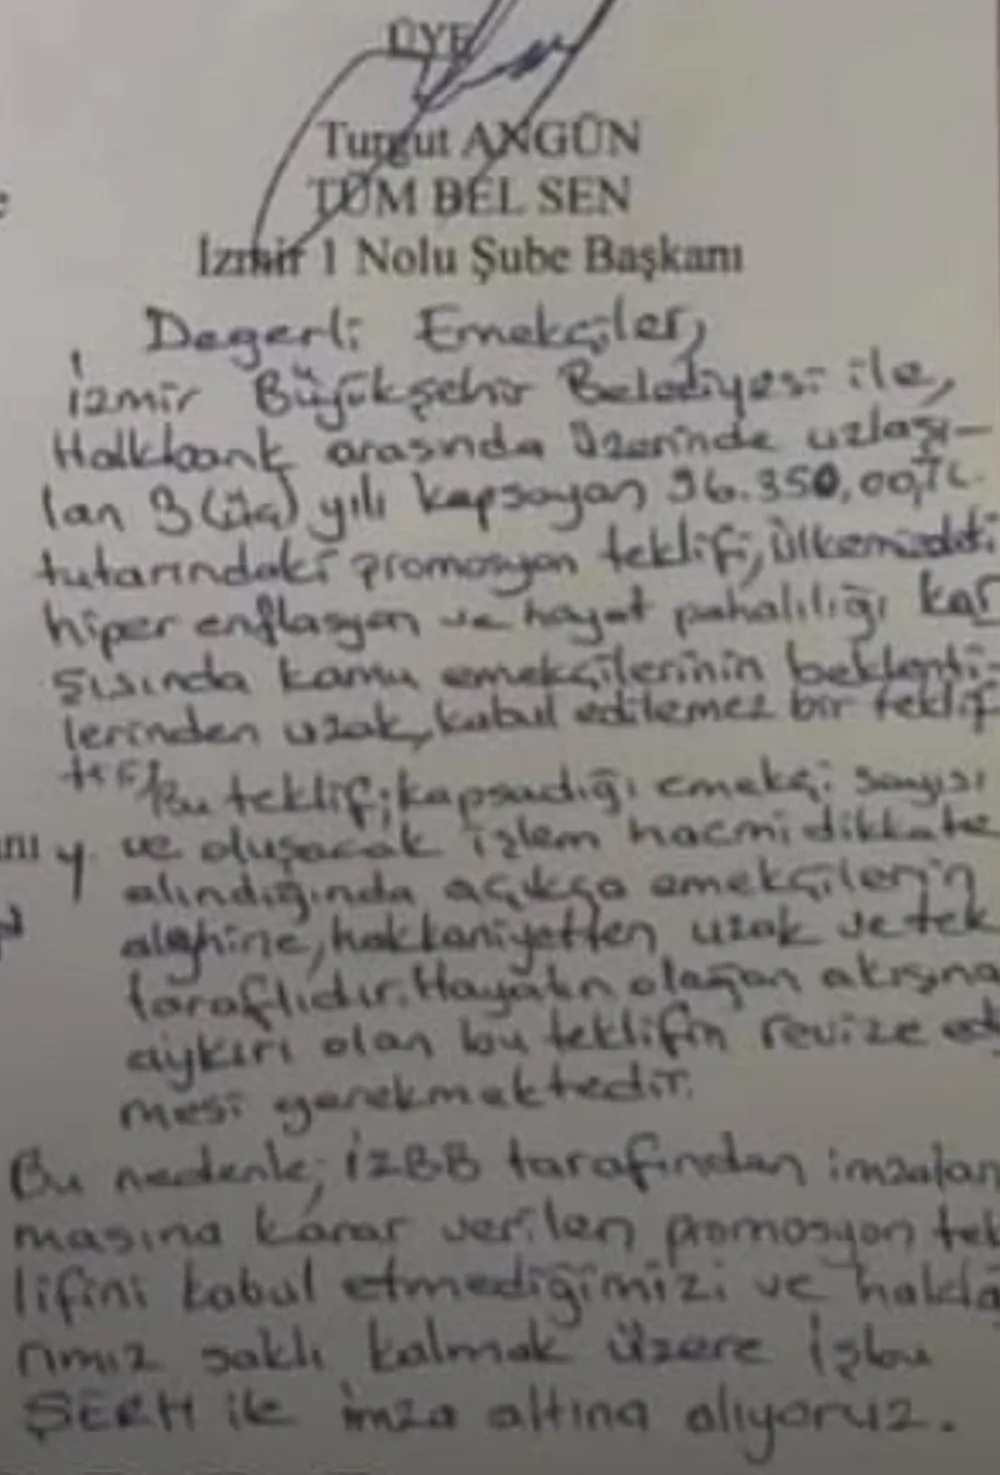 ÜYE
Turgut ANGÜN
TÜM BEL SEN
İzmir 1 Nolu Şube Başkanı
Degerli Emekçiler,
İzmir Büyükşehir Belediyesi ile,
Halkbank arasında üzerinde uzlaşı-
lan 3 (üç) yılı kapsayan 96.350,00,TL.
tutarındaki promosyon teklifi, ülkemizdeki
hiper enflasyon ve hayat pahalılığı kar
şısında kamu emekçilerinin beklenti-
lerinden uzak, kabul edilemez bir teklif
Bu teklif; kapsadığı emekçi sayısı
ve oluşacak işlem hacmi dikkate
alındığında açıkça emekçilerin
aleyhine, hakkaniyetten uzak ve tek
taraflıdır. Hayatın olağan akışına
aykırı olan bu teklifin revize ed
mesi gerekmektedir.
Bu nedenle; İZBB tarafından imzalan
masına karar verilen promosyon tek
lifini kabul etmediğimizi ve hakla
rımız saklı kalmak üzere işbu
ŞERH ile imza altına alıyoruz.